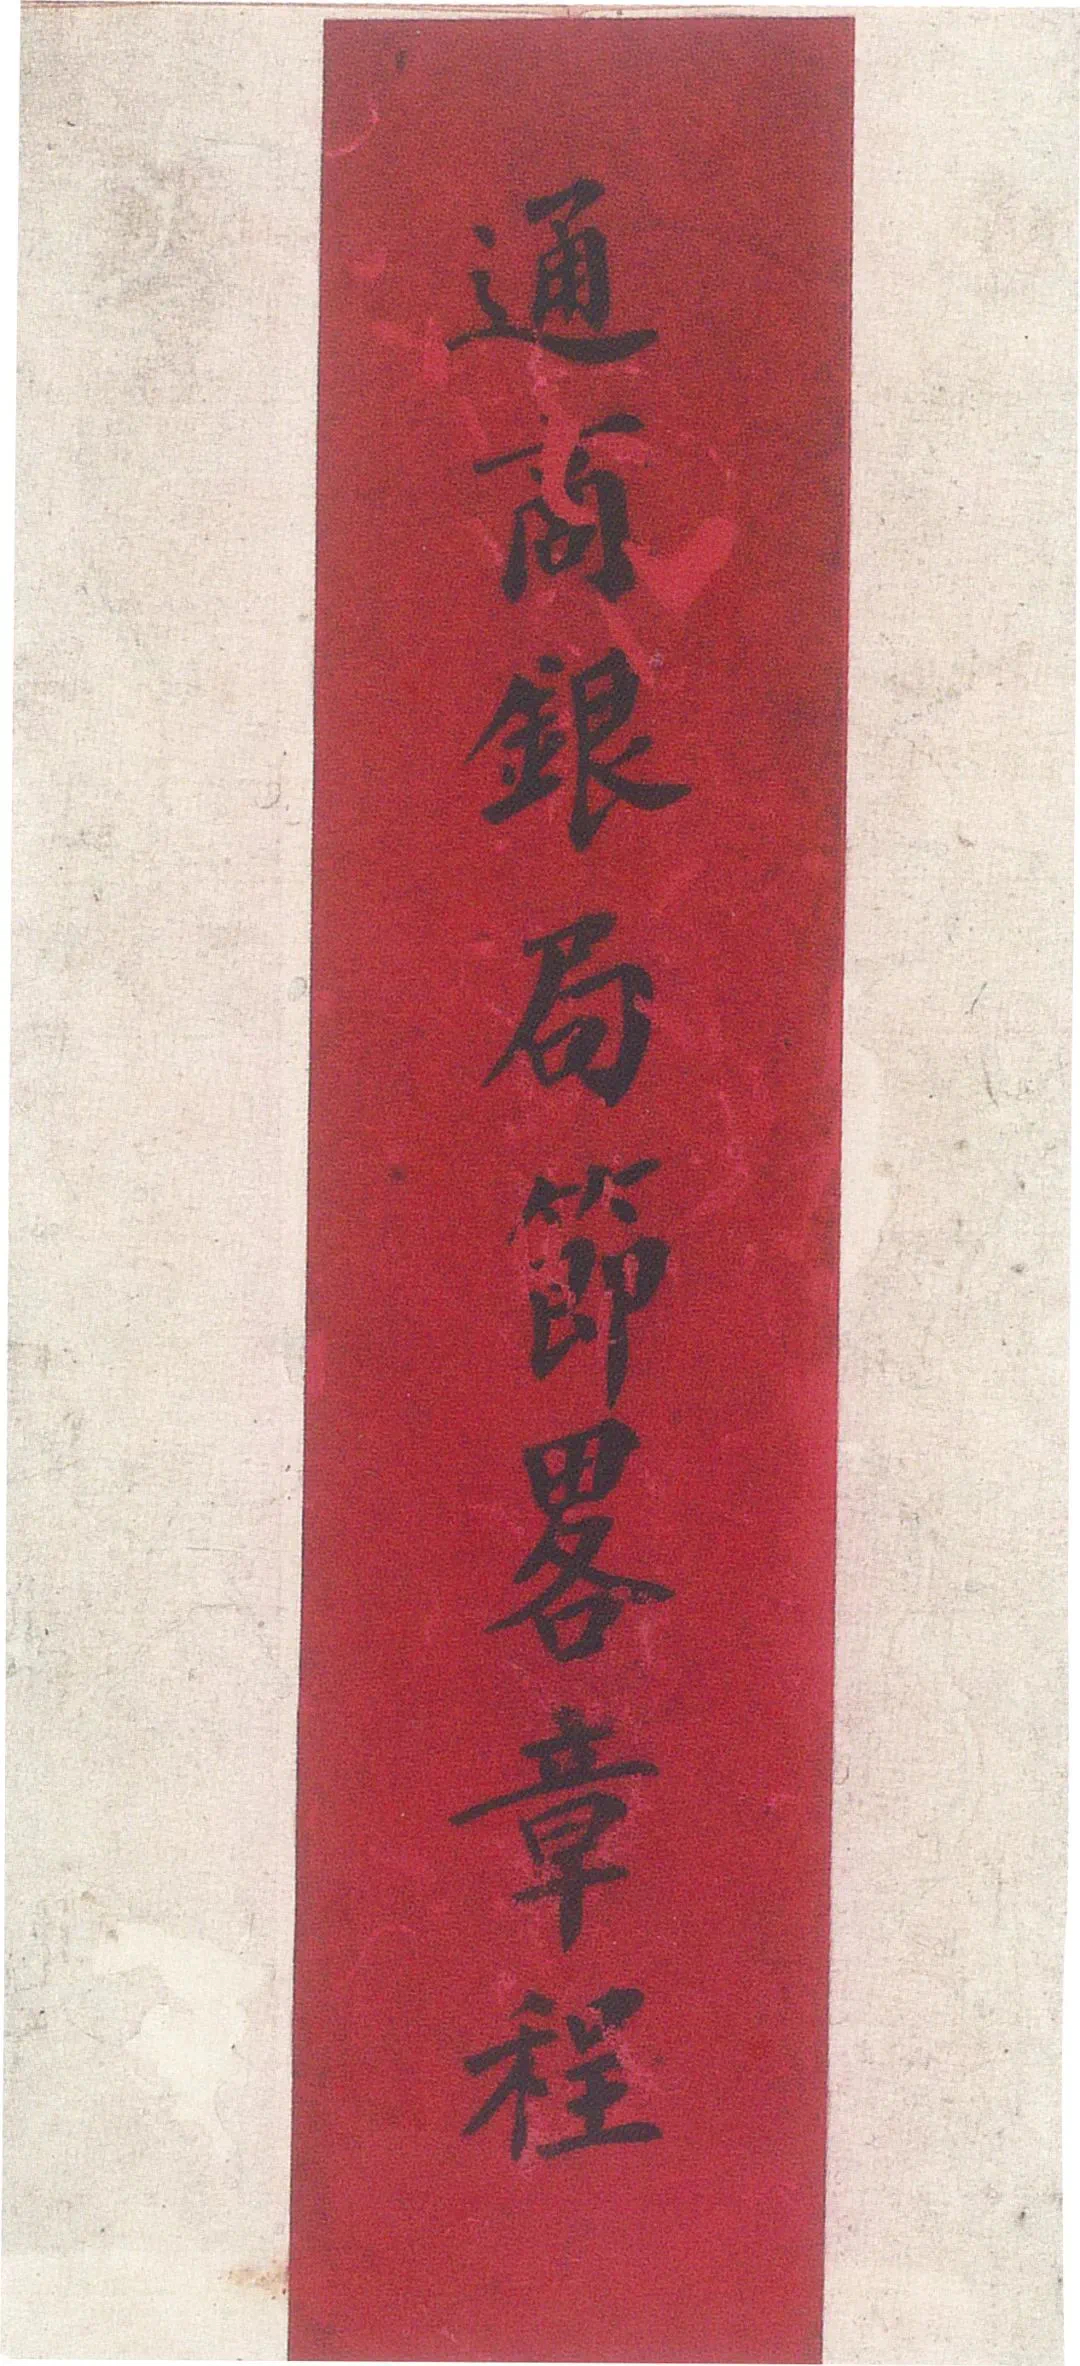 通商銀局節畧章程